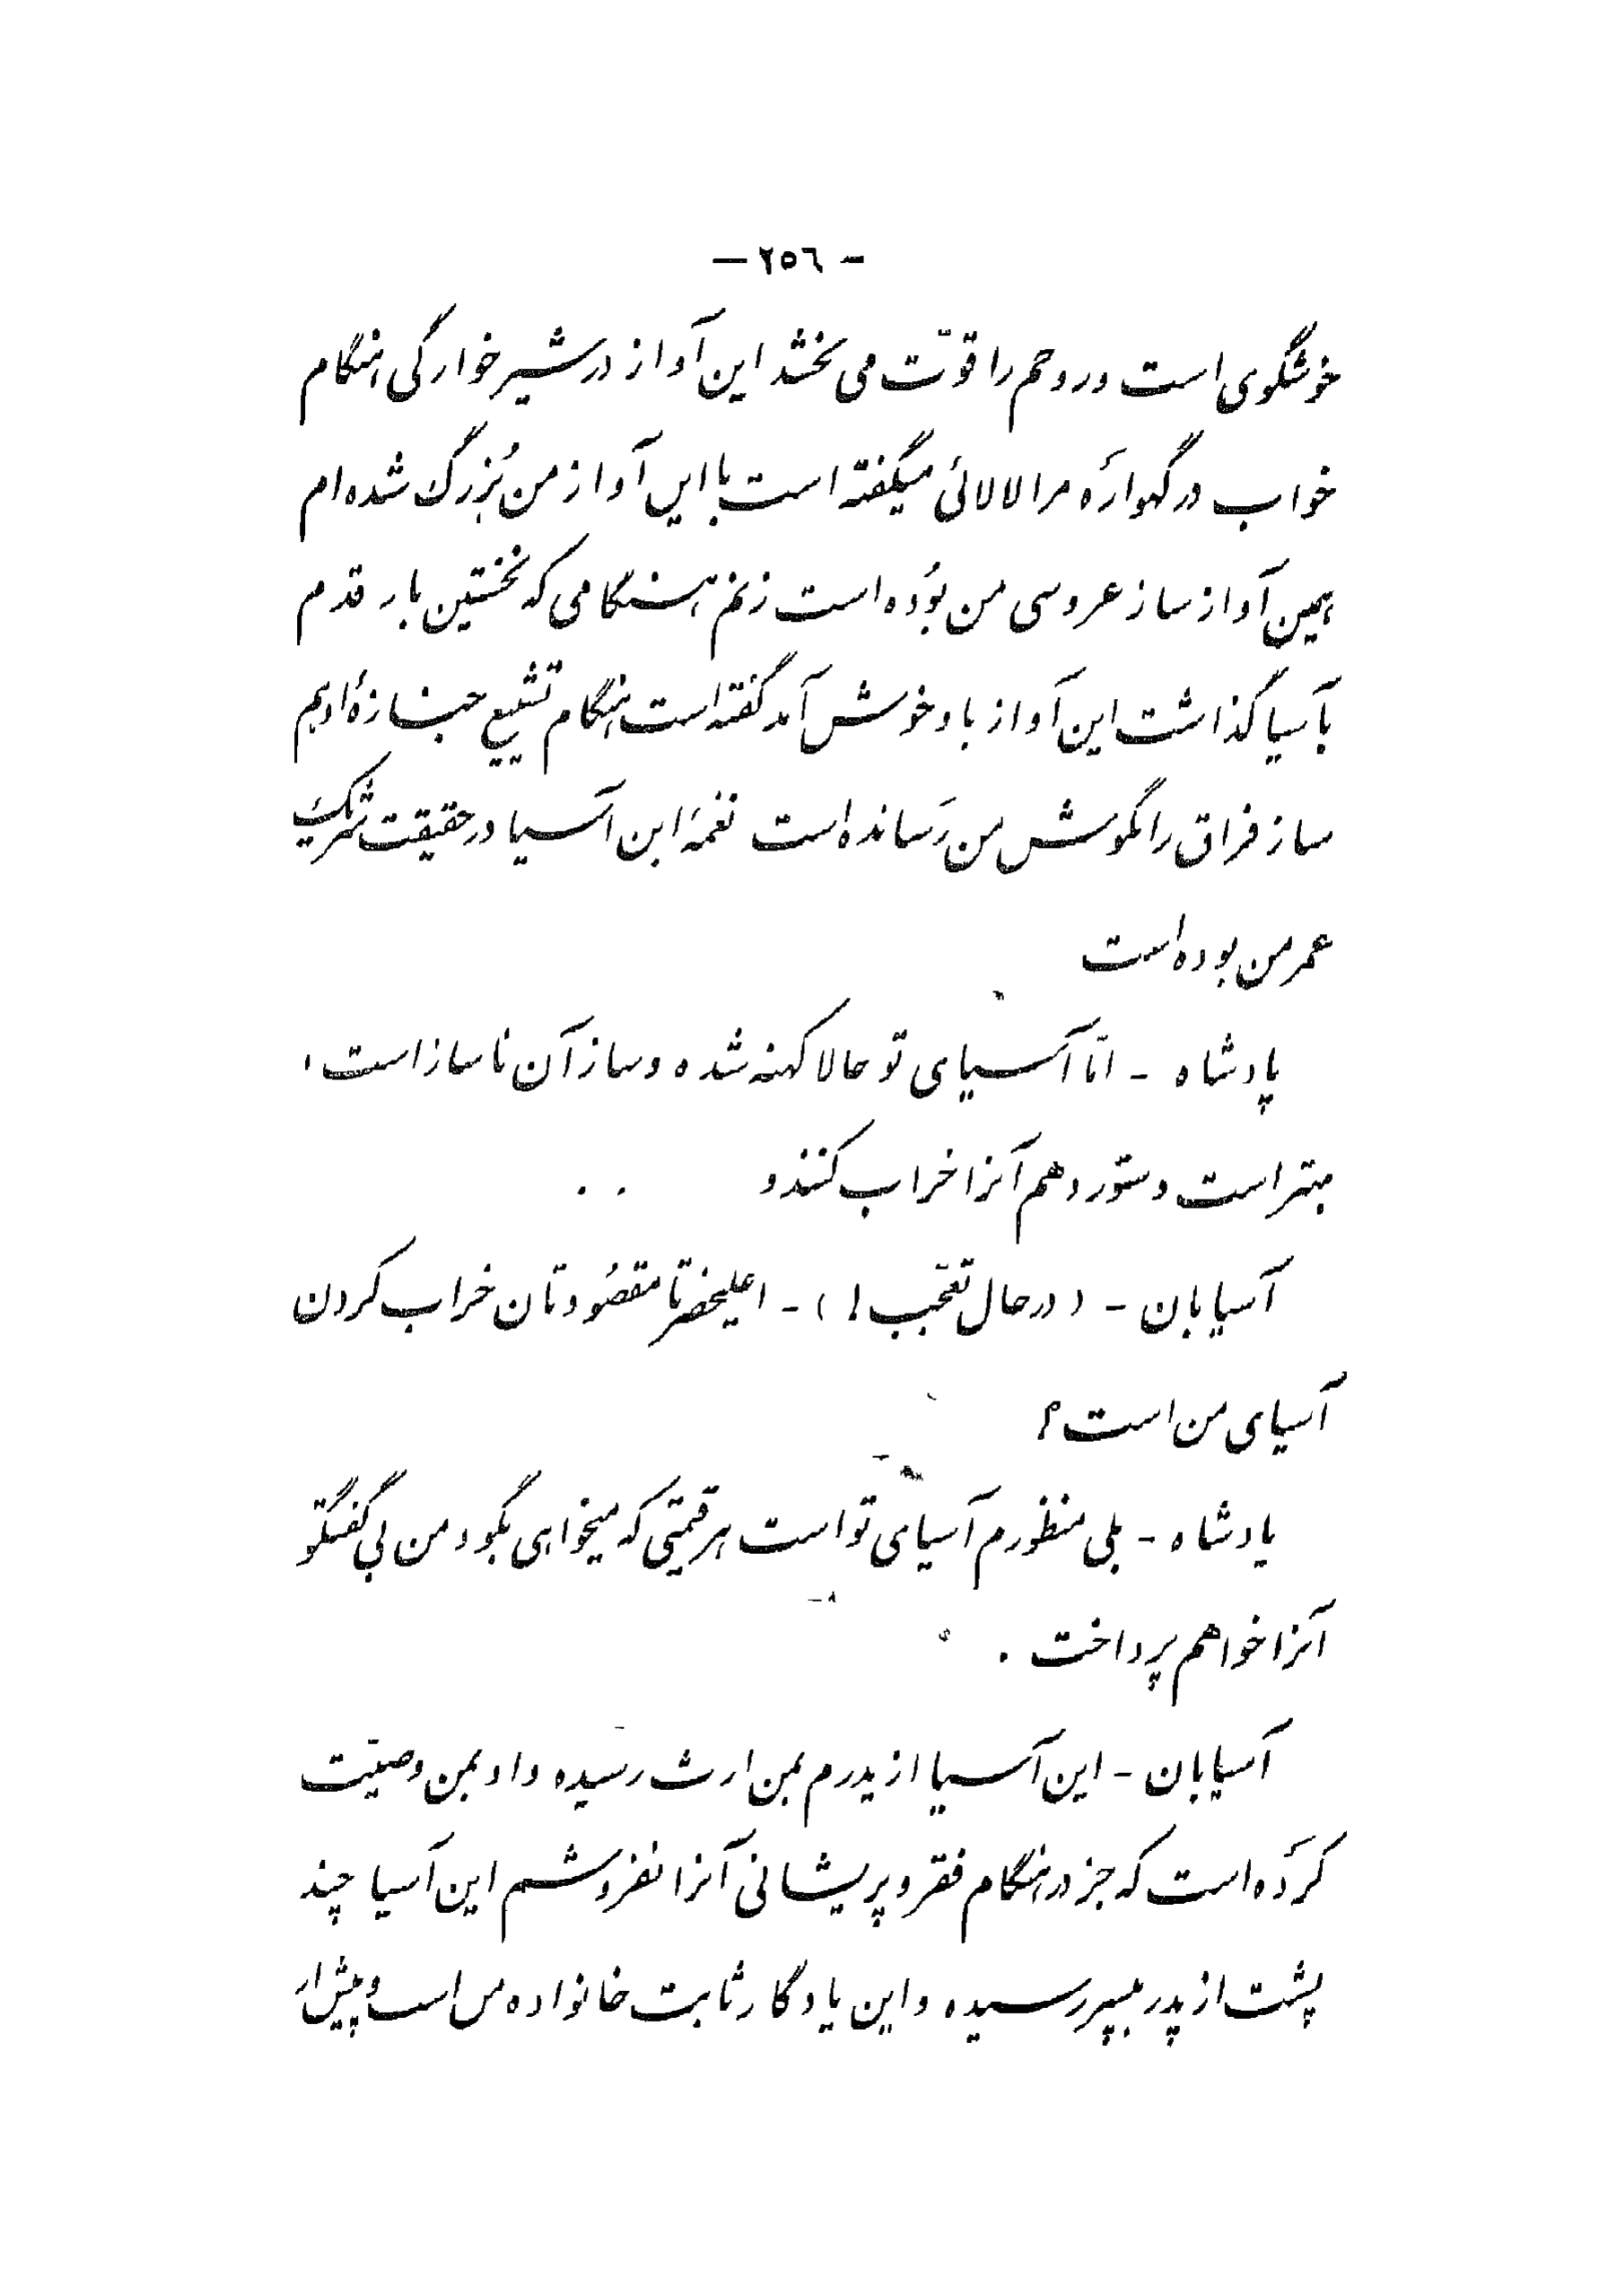 - ٢٥٦ -
خوشگوی است وروحم را قوّت می بخشد این آواز درشیرخوارگی هنگام
خواب درگهوارَه مرا لالائی میگفته است با این آواز من بُزرگ شده ام
همین آواز ساز عروسی من بوُده است زنم هنگامی که نخستین بار قدم
بآسیا گذاشت این آواز باو خوش آمد گفته است هنگام تشییع جنازهٔ او هم
ساز فراق را بگوش من رَسانده است نغمهٔ این آسیا درحقیقت شریک
عمر من بوده است
پادشاه - امّا آسیای تو حالا کهنه شده وساز آن ناساز است ،
بهتر است دستور دهم آنرا خراب کنند و . .
آسیابان - ( درحال تعجّب ! ) - اعلیحضرتا مقصُودتان خراب کردن
آسیای من است ؟
پادشاه - بلی منظورم آسیای تو است هر قیمتی که میخواهی بگو ومن بی گفتگو
آنرا خواهم پرداخت .
آسیابان - این آسیا از پدرم بمن ارث رسیده و او بمن وصیّت
کرَده است که جز درهنگام فقر و پریشانی آنرا نفروشم این آسیا چند
پشت از پدر بپسر رسیده و این یادگار ثابت خانواده من است و پیش از